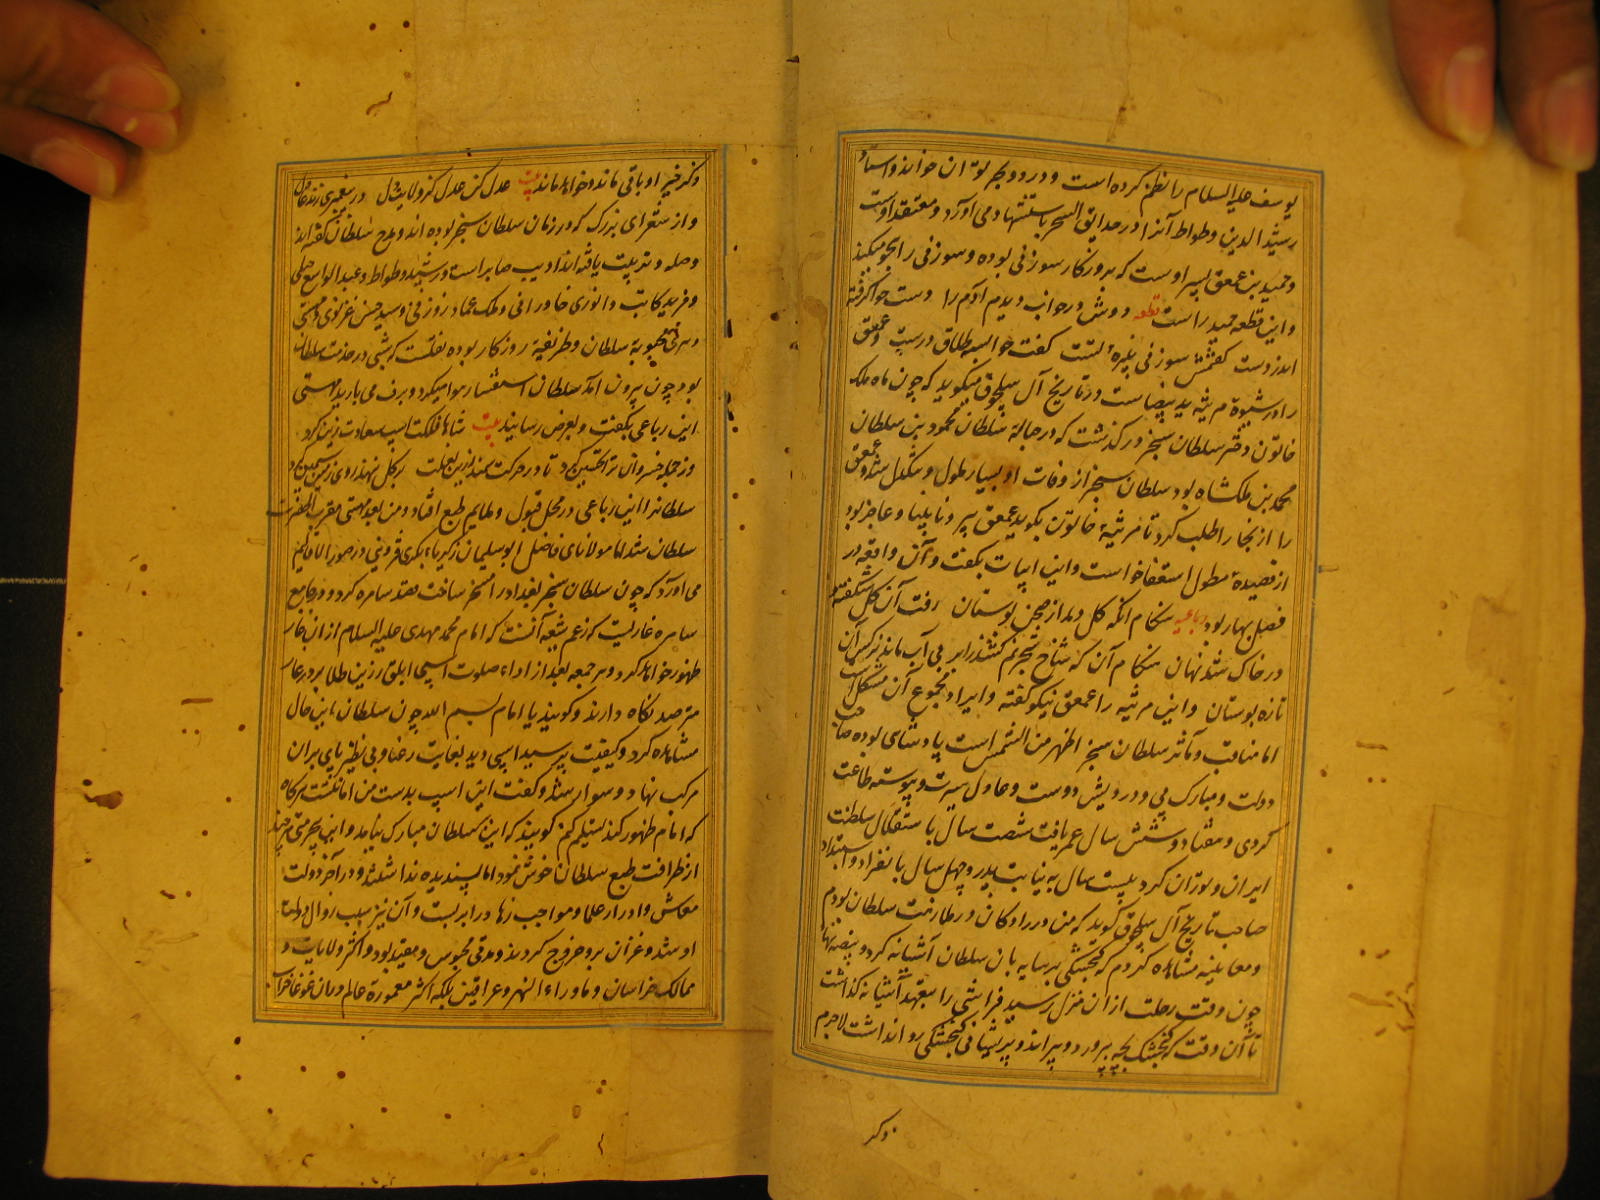 یوسف علیه السلام را نظم کرده است و در دو بحر توان خواند و استاد
رشید الدین وطواط آنرا در حدایق السحر باستشهاد می آورد و معتقد اوست
و حمید بن عمعق پسر اوست که بروزکار سوزنی بوده و سوزنی را هجو میکند
و این قطعه حمید راست قطعه دوش در خواب دیدم آدم را دست حوا کرفته
اندر دست کفتمش سوزنی نبیرهٔ تست کفت حوا بسه طلاق ار هست و عمعق
را در شیوهٔ مرثیه ید بیضاست در تاریخ آل سلجوق میکوید که چون ماه ملک
خاتون دختر سلطان سنجر درکذشت که در حبالهٔ سلطان محمود بن سلطان
محمد بن ملکشاه بود سلطان سنجر از وفات او بسیار ملول و تنکدل شد و عمعق
را از بخارا طلب کرد تا مرثیهٔ خاتون بکوید عمعق پیر و نابینا و عاجز بود
از قصیدهٔ مطول استعفا خواست و این ابیات بکفت و آن واقعه در
فصل بهار بود رباعیه هنکام آنکه کل دمد از صحن بوستان رفت آن کل شکفته و
در خاک شد نهان هنکام آن که شاخ شجر نم کشد ز ابر بی آب ماند نرکس آن
تازه بوستان و این مرثیه را عمعق نیکو کفته و ایراد مجموع آن مشکل است
اما مناقب و مآثر سلطان سنجر اظهر من الشمس است پادشاهی بوده صاحب
دولت و مبارک پی و درویش دوست و عادل سیرت و پیوسته طاعت
کردی و هفتاد و شش سال عمر یافت شصت سال باستقلال سلطنت
ایران و توران کرد بیست سال به نیابت پدر و چهل سال بانفراد و استبداد
صاحب تاریخ آل سلجوق کوید که من در رادکان در ملازمت سلطان بودم
و معاینه مشاهده کردم که کنجشکی بر سایه بان سلطان آشیانه کرد و بیضه نهاد
چون وقت رحلت از آن منزل رسید فراشی را بتعهد آشیانه کذاشت
تا آن وقت که کنجشک بچه بپرورد و بپراند و پریشانی کنجشکی روا نداشت لاجرم
ذکر
ذکر خیر او باقی مانده و خواهد ماند بیت عدل کن عدل کن ز ولایت دل در پیغمبری زند عادل
و از شعرای بزرک که در زمان سلطان سنجر بوده اند و مدح سلطان کفته اند
و صله و تربیت یافته اند ادیب صابر است و رشید وطواط و عبد الواسع جبلی
و فرید کاتب و انوری خاورانی و ملک عماد زوزنی و سید حسن غزنوی و مهستی
و مهستی محبوبهٔ سلطان و ظریفهٔ روزکار بوده نقلست که شبی در خدمت سلطان
بود چون بیرون آمد سلطان استفسار هوا میکرد و برف می بارید مهستی
این رباعی بکفت و بعرض رسانید بیت شاها فلکت اسب سعادت زین کرد
وز جمله خسروان ترا تحسین کرد تا در حرکت سمند زرین نعلت بر کل ننهد روی زمین سیمین کرد
سلطانرا این رباعی در محل قبول و ملایم طبع افتاد و من بعد مهستی مقرب الحضرت
سلطان شد اما مولانای فاضل ابو سلیمان زکریا بکری قزوینی در صور الاقالیم
می آورد که چون سلطان سنجر بغداد را مسخر ساخت قصد سامره کرد و در جامع
سامره غاریست که زعم شیعه آنست که امام محمد مهدی علیه السلام از آن غار
ظهور خواهد کرد و هر جمعه بعد از اداء صلوت اسپی ابلق با زین طلا بر در غار
مترصد نکاه دارند و کویند یا امام بسم الله چون سلطان این حال
مشاهده کرد و کیفیت پرسید اسپی دید بغایت رعنا و بی نظیر پای بر آن
مرکب نهاد و سوار شد و کفت این اسپ بدست من امانتست هرکاه
که امام ظهور کند تسلیم کنم کویند که این سلطان مبارک نیامد و این بحرمتی هر چند
از ظرافت طبع سلطان خوش نمود اما پسندیده نداشتند و در آخر دولت
معاش و ادرار علما و مواجب زهاد را در بست و آن نیز سبب زوال دولت
او شد و غزان برو خروج کردند و مدتی محبوس و مقید بود و اکثر ولایات و
ممالک خراسان و ماوراء النهر و عراقین بلکه اکثر معمورهٔ عالم در آن غوغا خراب